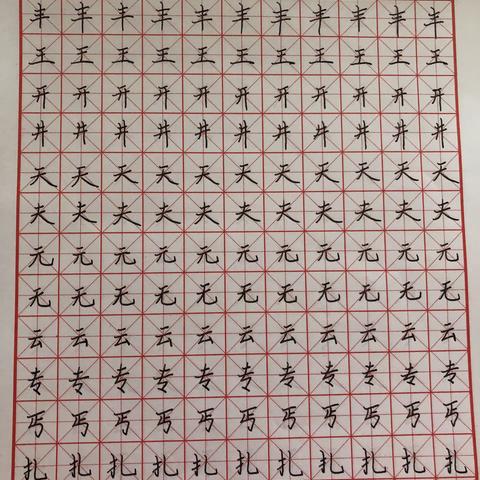 丰丰丰丰丰丰丰丰丰丰丰
王王王王王王王王王王王
开开开开开开开开开开开
井井井井井井井井井井井
天天天天天天天天天天天
夫夫夫夫夫夫夫夫夫夫夫
元元元元元元元元元元元
无无无无无无无无无无无
云云云云云云云云云云云
专专专专专专专专专专专
丐丐丐丐丐丐丐丐丐丐丐
扎扎扎扎扎扎扎扎扎扎扎